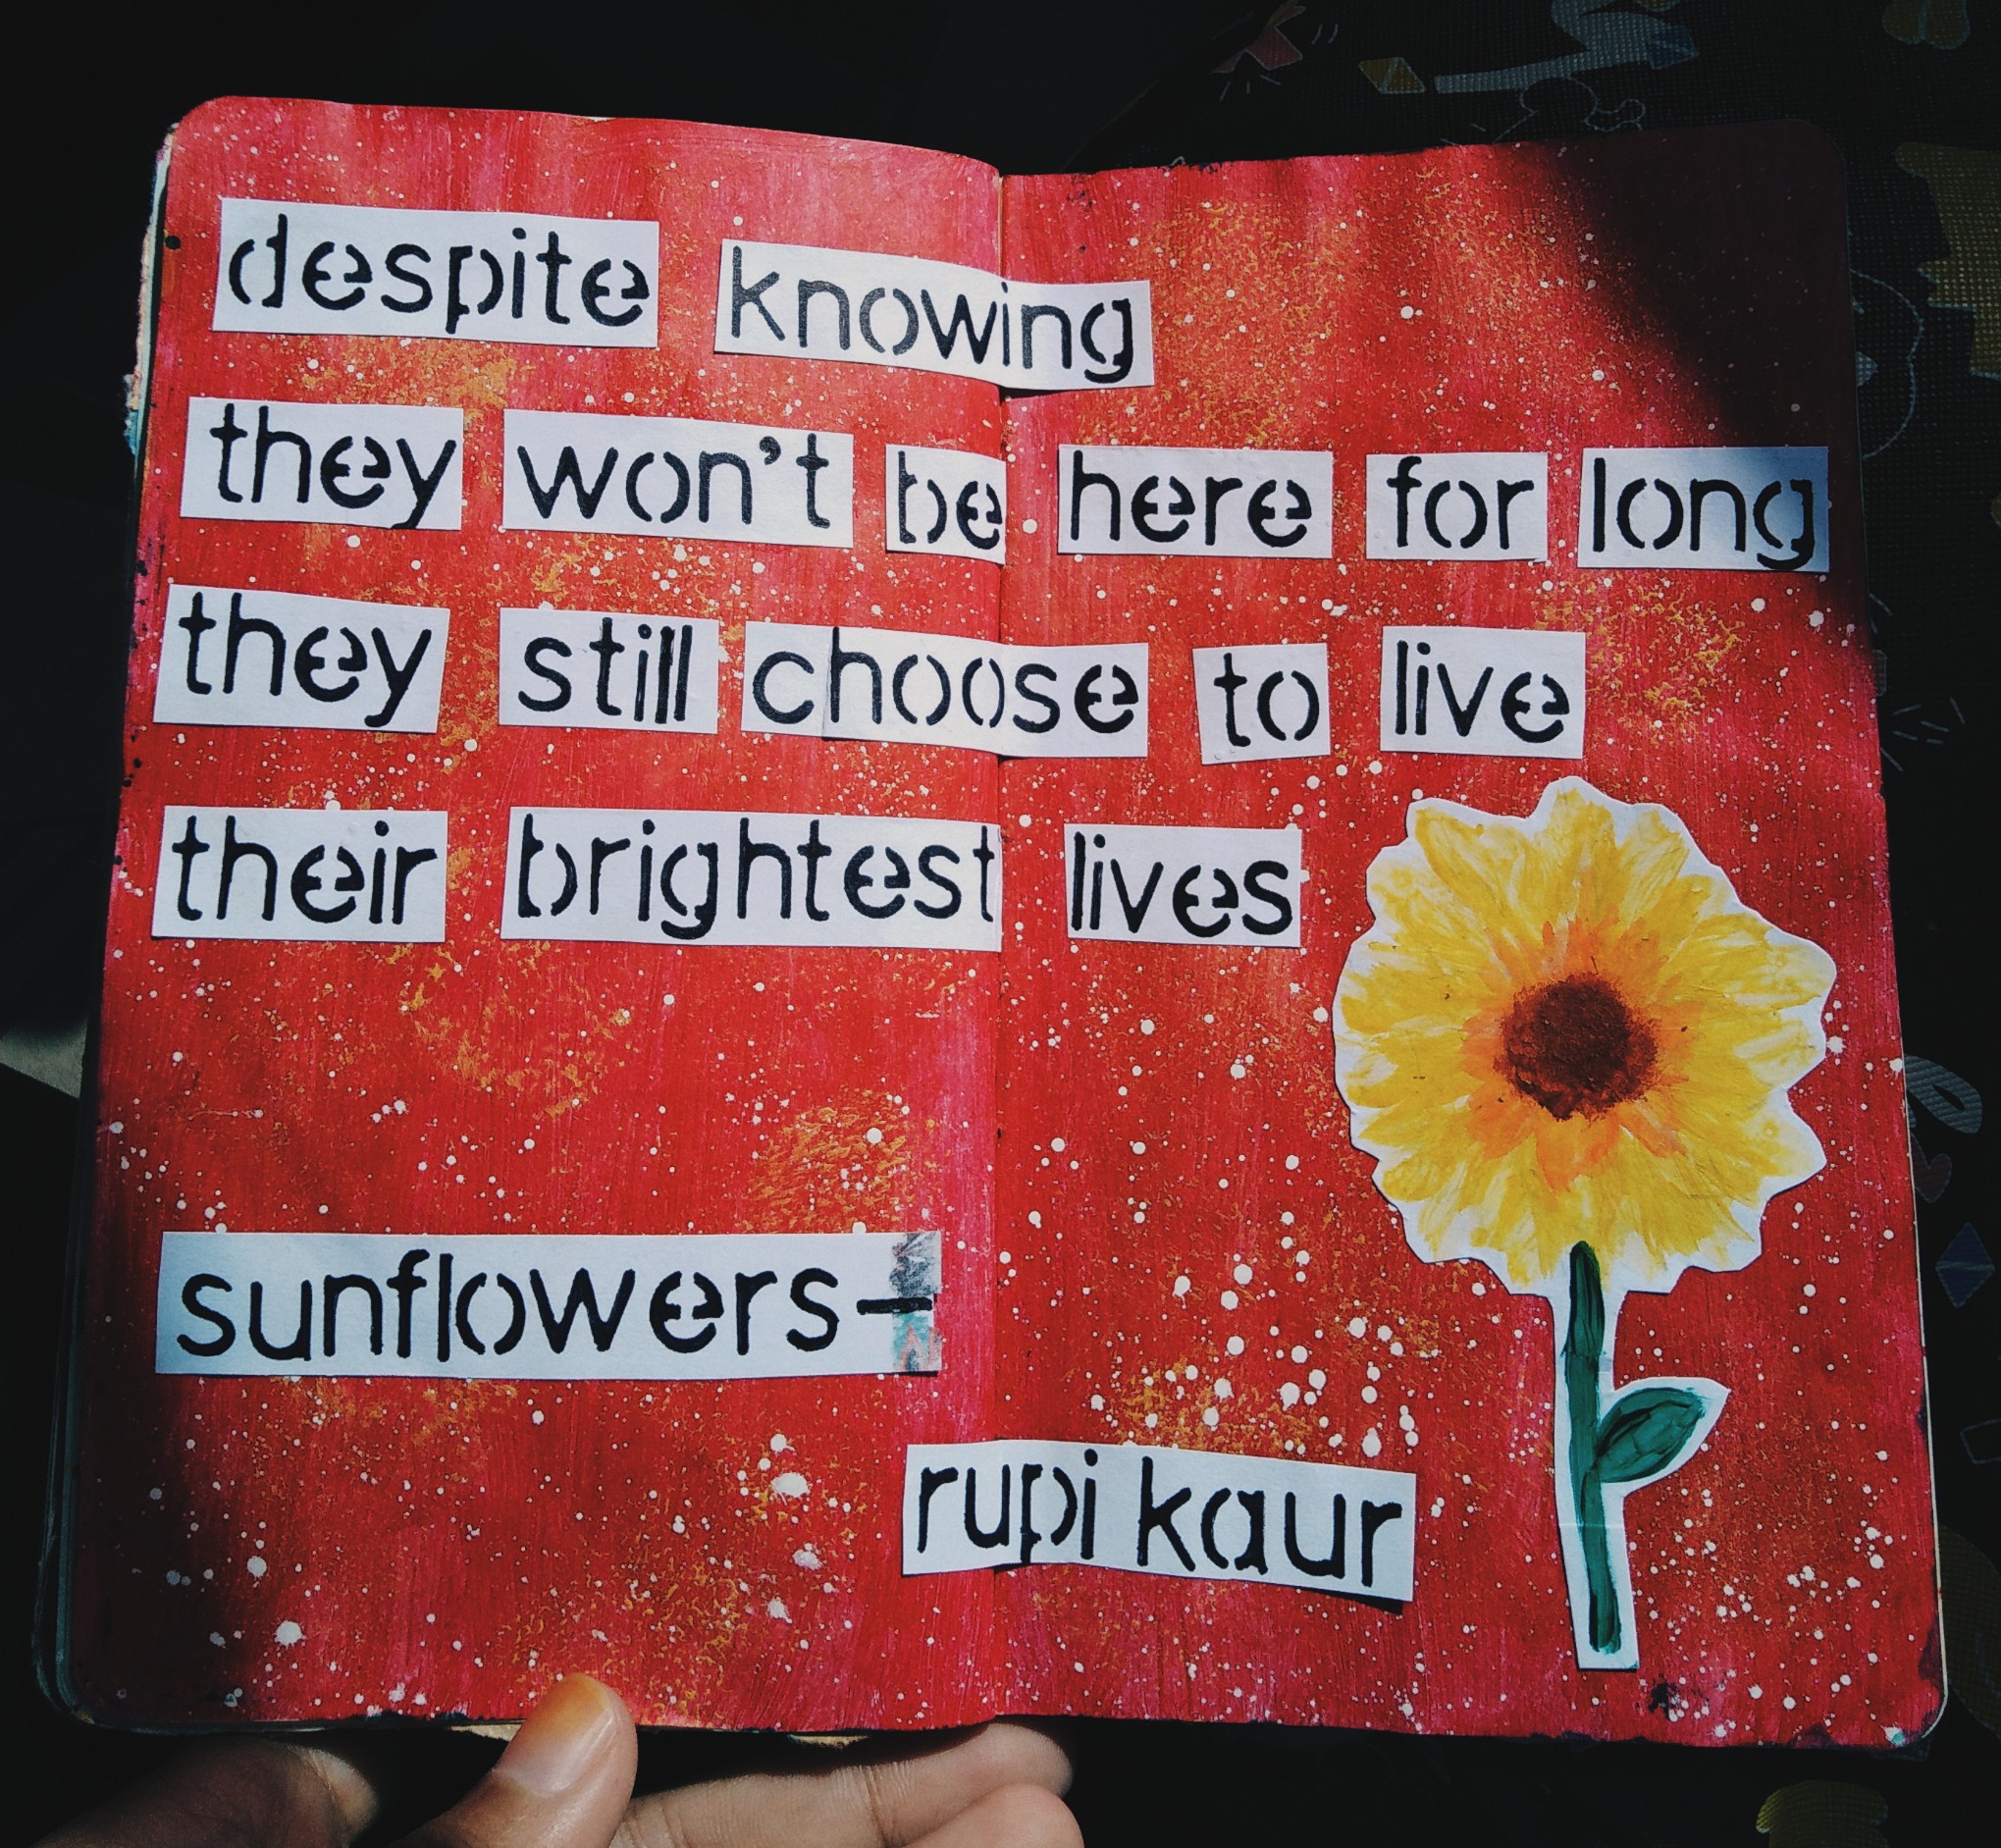 despite knowing
they won't be here for long
they still choose to live
their brightest lives
sunflowers-
rupi kaur